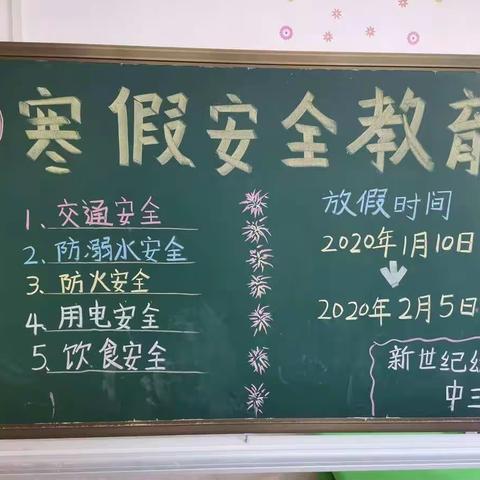 寒假安全教育
1、交通安全
2、防溺水安全
3、防火安全
4、用电安全
5、饮食安全
放假时间
2020年1月10日
2020年2月5日
新世纪幼
中三